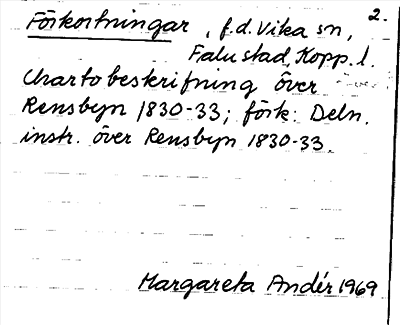 2.
Förkortningar, f.d. Vika sn,
Falu stad, Kopp. l.
Chartobeskrifning över
Rensbyn 1830-33; förk: Deln.
instr. över Rensbyn 1830-33.
Margareta Andér 1969